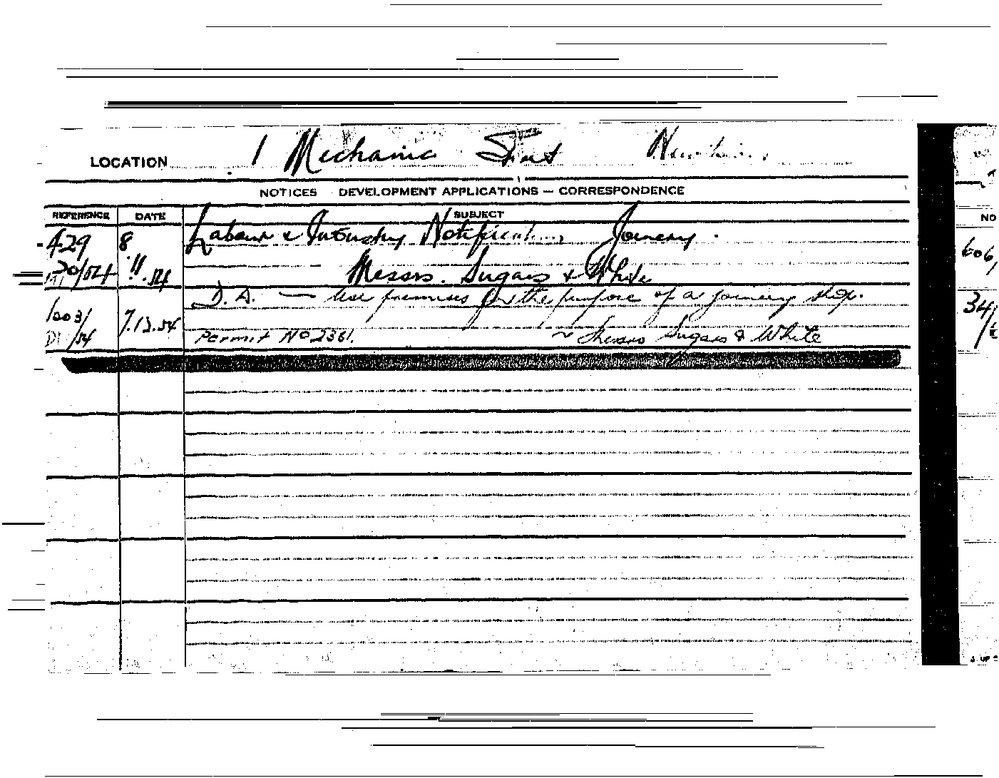 LOCATION 1 Mechanic Street
NOTICES DEVELOPMENT APPLICATIONS — CORRESPONDENCE
REFERENCE DATE SUBJECT NO
429 8 Labour & Industry Joinery.
11.54 Messrs. Sugars & White 606/
D.A. — Use premises for the purpose of a joinery shop.
1003/ 7.12.54 34/
/54 Permit No 2361. ~ Messrs Sugars & White